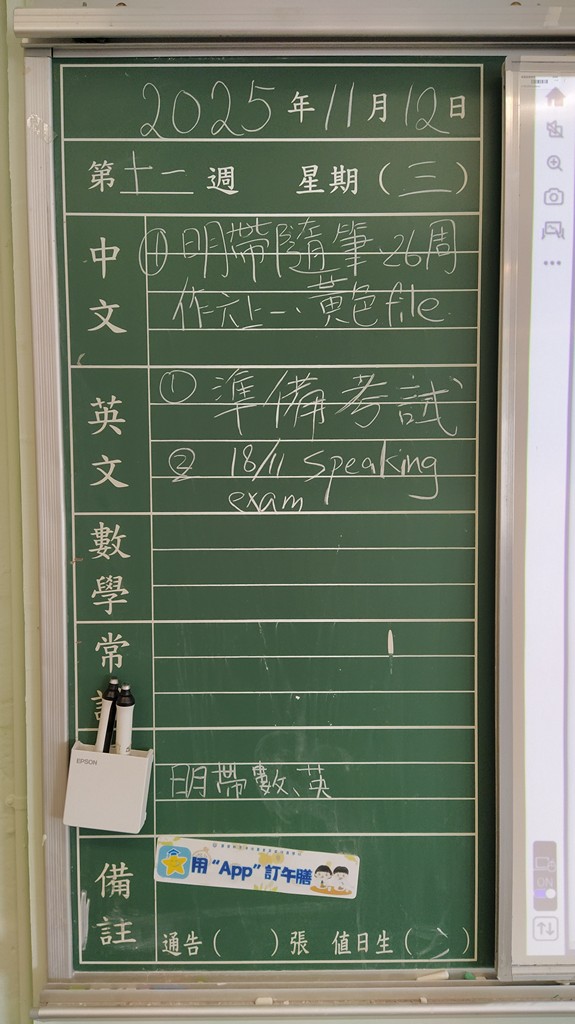 2025年11月12日
第十一週 星期(三)
中文
① 明帶隨筆、26周
作六上一、黃色file
英文
① 準備考試
② 18/11 speaking
exam
數學
常
EPSON
明帶數、英
備註
用“App”訂午膳
通告( )張 值日生( )